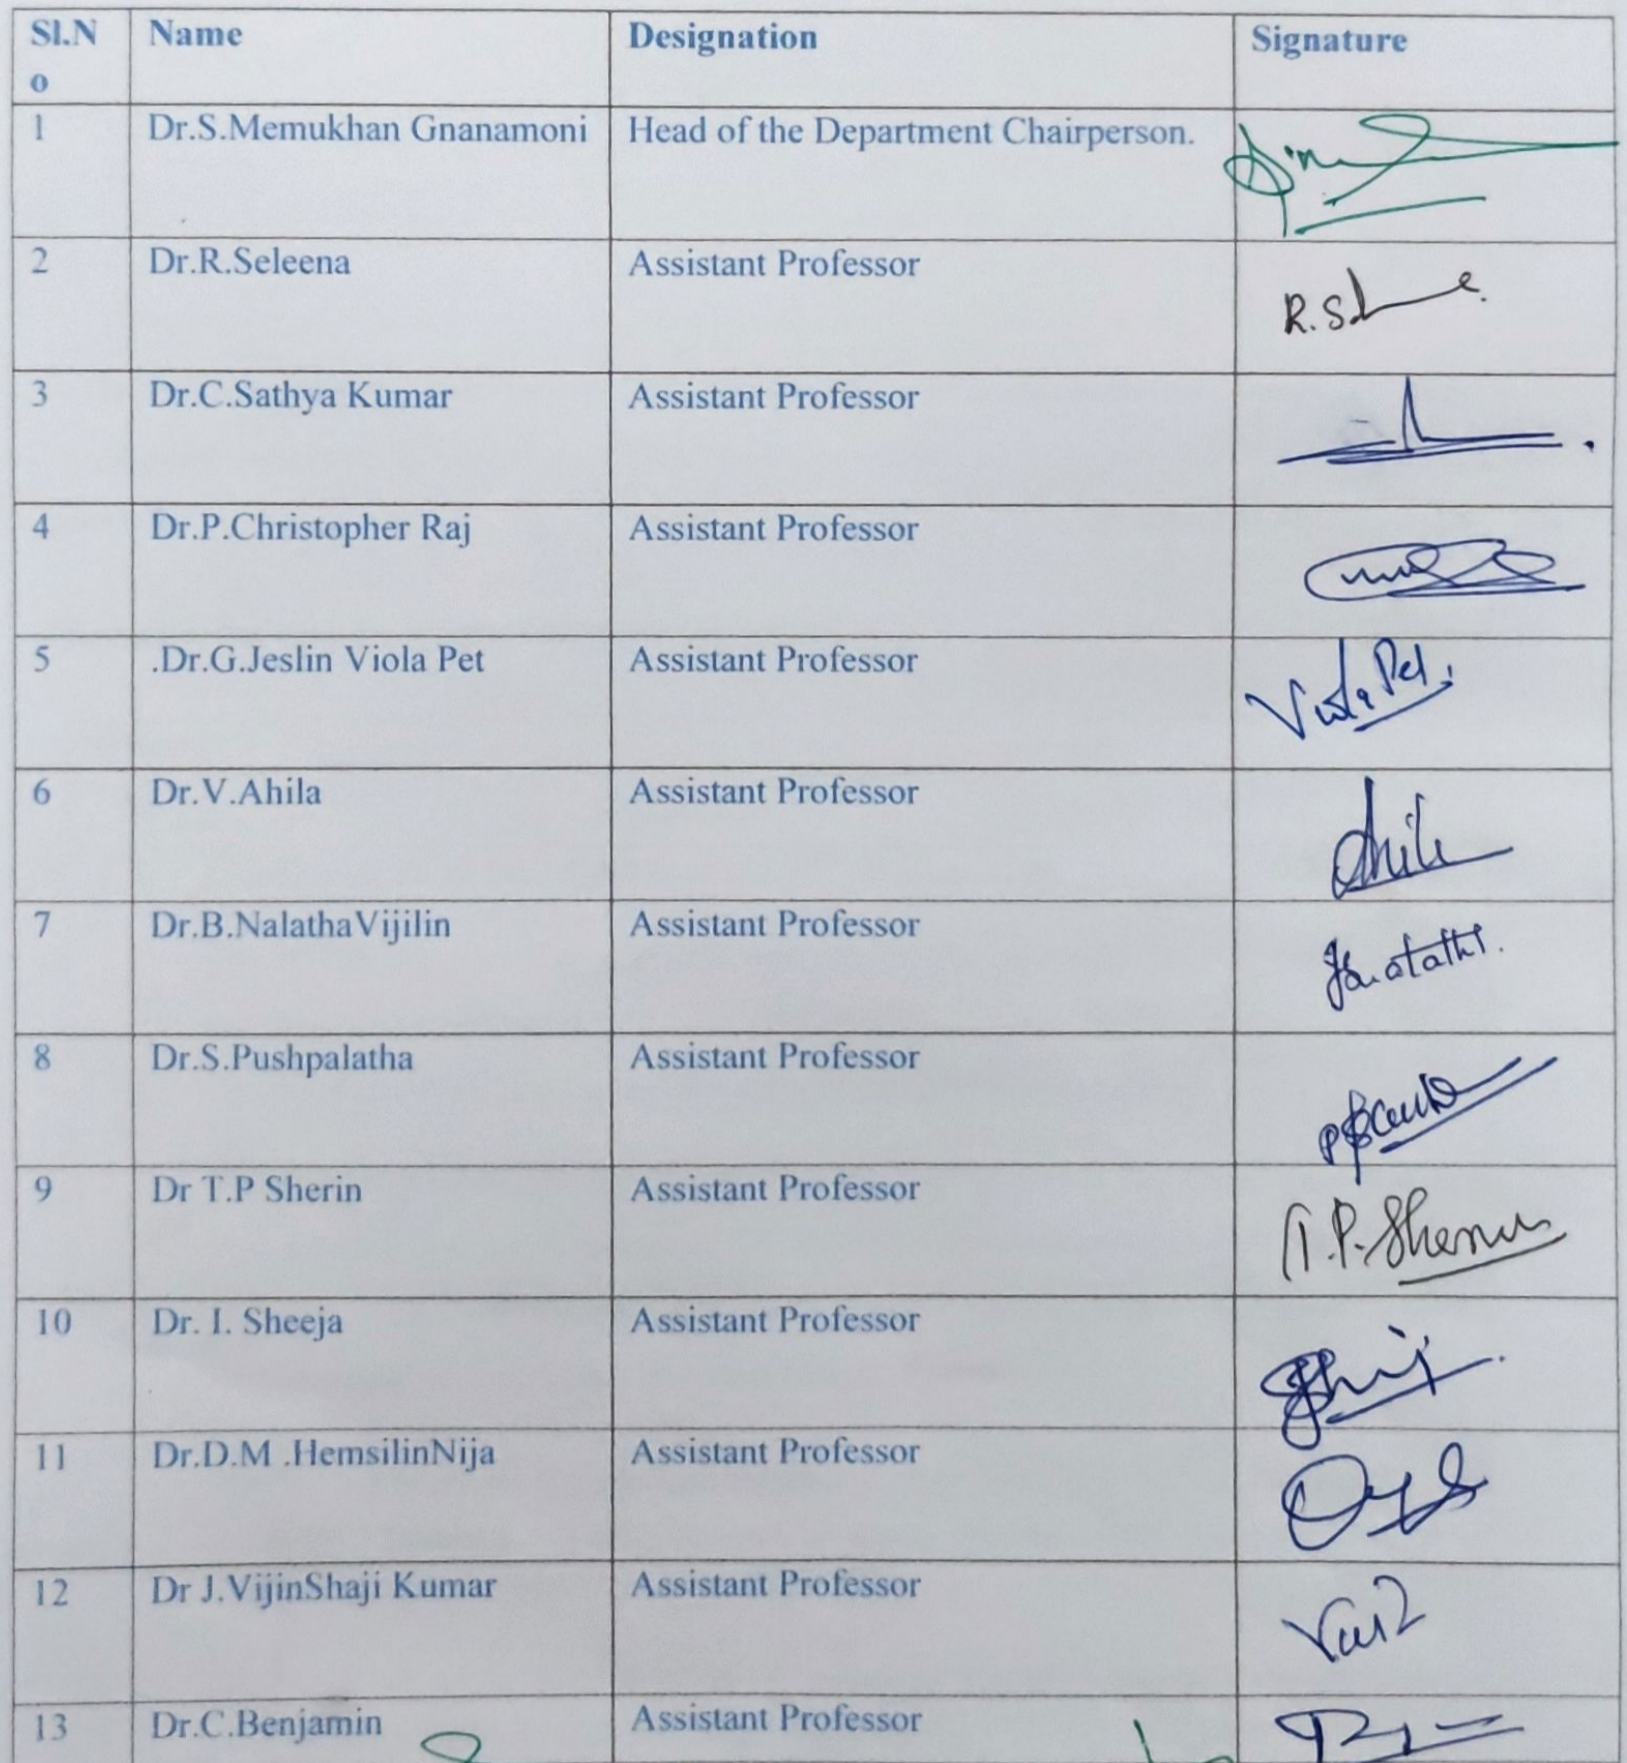 Sl.N Name Designation Signature
o
1 Dr.S.Memukhan Gnanamoni Head of the Department Chairperson.
2 Dr.R.Seleena Assistant Professor
R.S
3 Dr.C.Sathya Kumar Assistant Professor
4 Dr.P.Christopher Raj Assistant Professor
5 .Dr.G.Jeslin Viola Pet Assistant Professor
Viola Pet.
6 Dr.V.Ahila Assistant Professor
Ahila
7 Dr.B.NalathaVijilin Assistant Professor
8 Dr.S.Pushpalatha Assistant Professor
9 Dr T.P Sherin Assistant Professor
T.P.Sherin
10 Dr. I. Sheeja Assistant Professor
11 Dr.D.M .HemsilinNija Assistant Professor
12 Dr J.VijinShaji Kumar Assistant Professor
13 Dr.C.Benjamin Assistant Professor